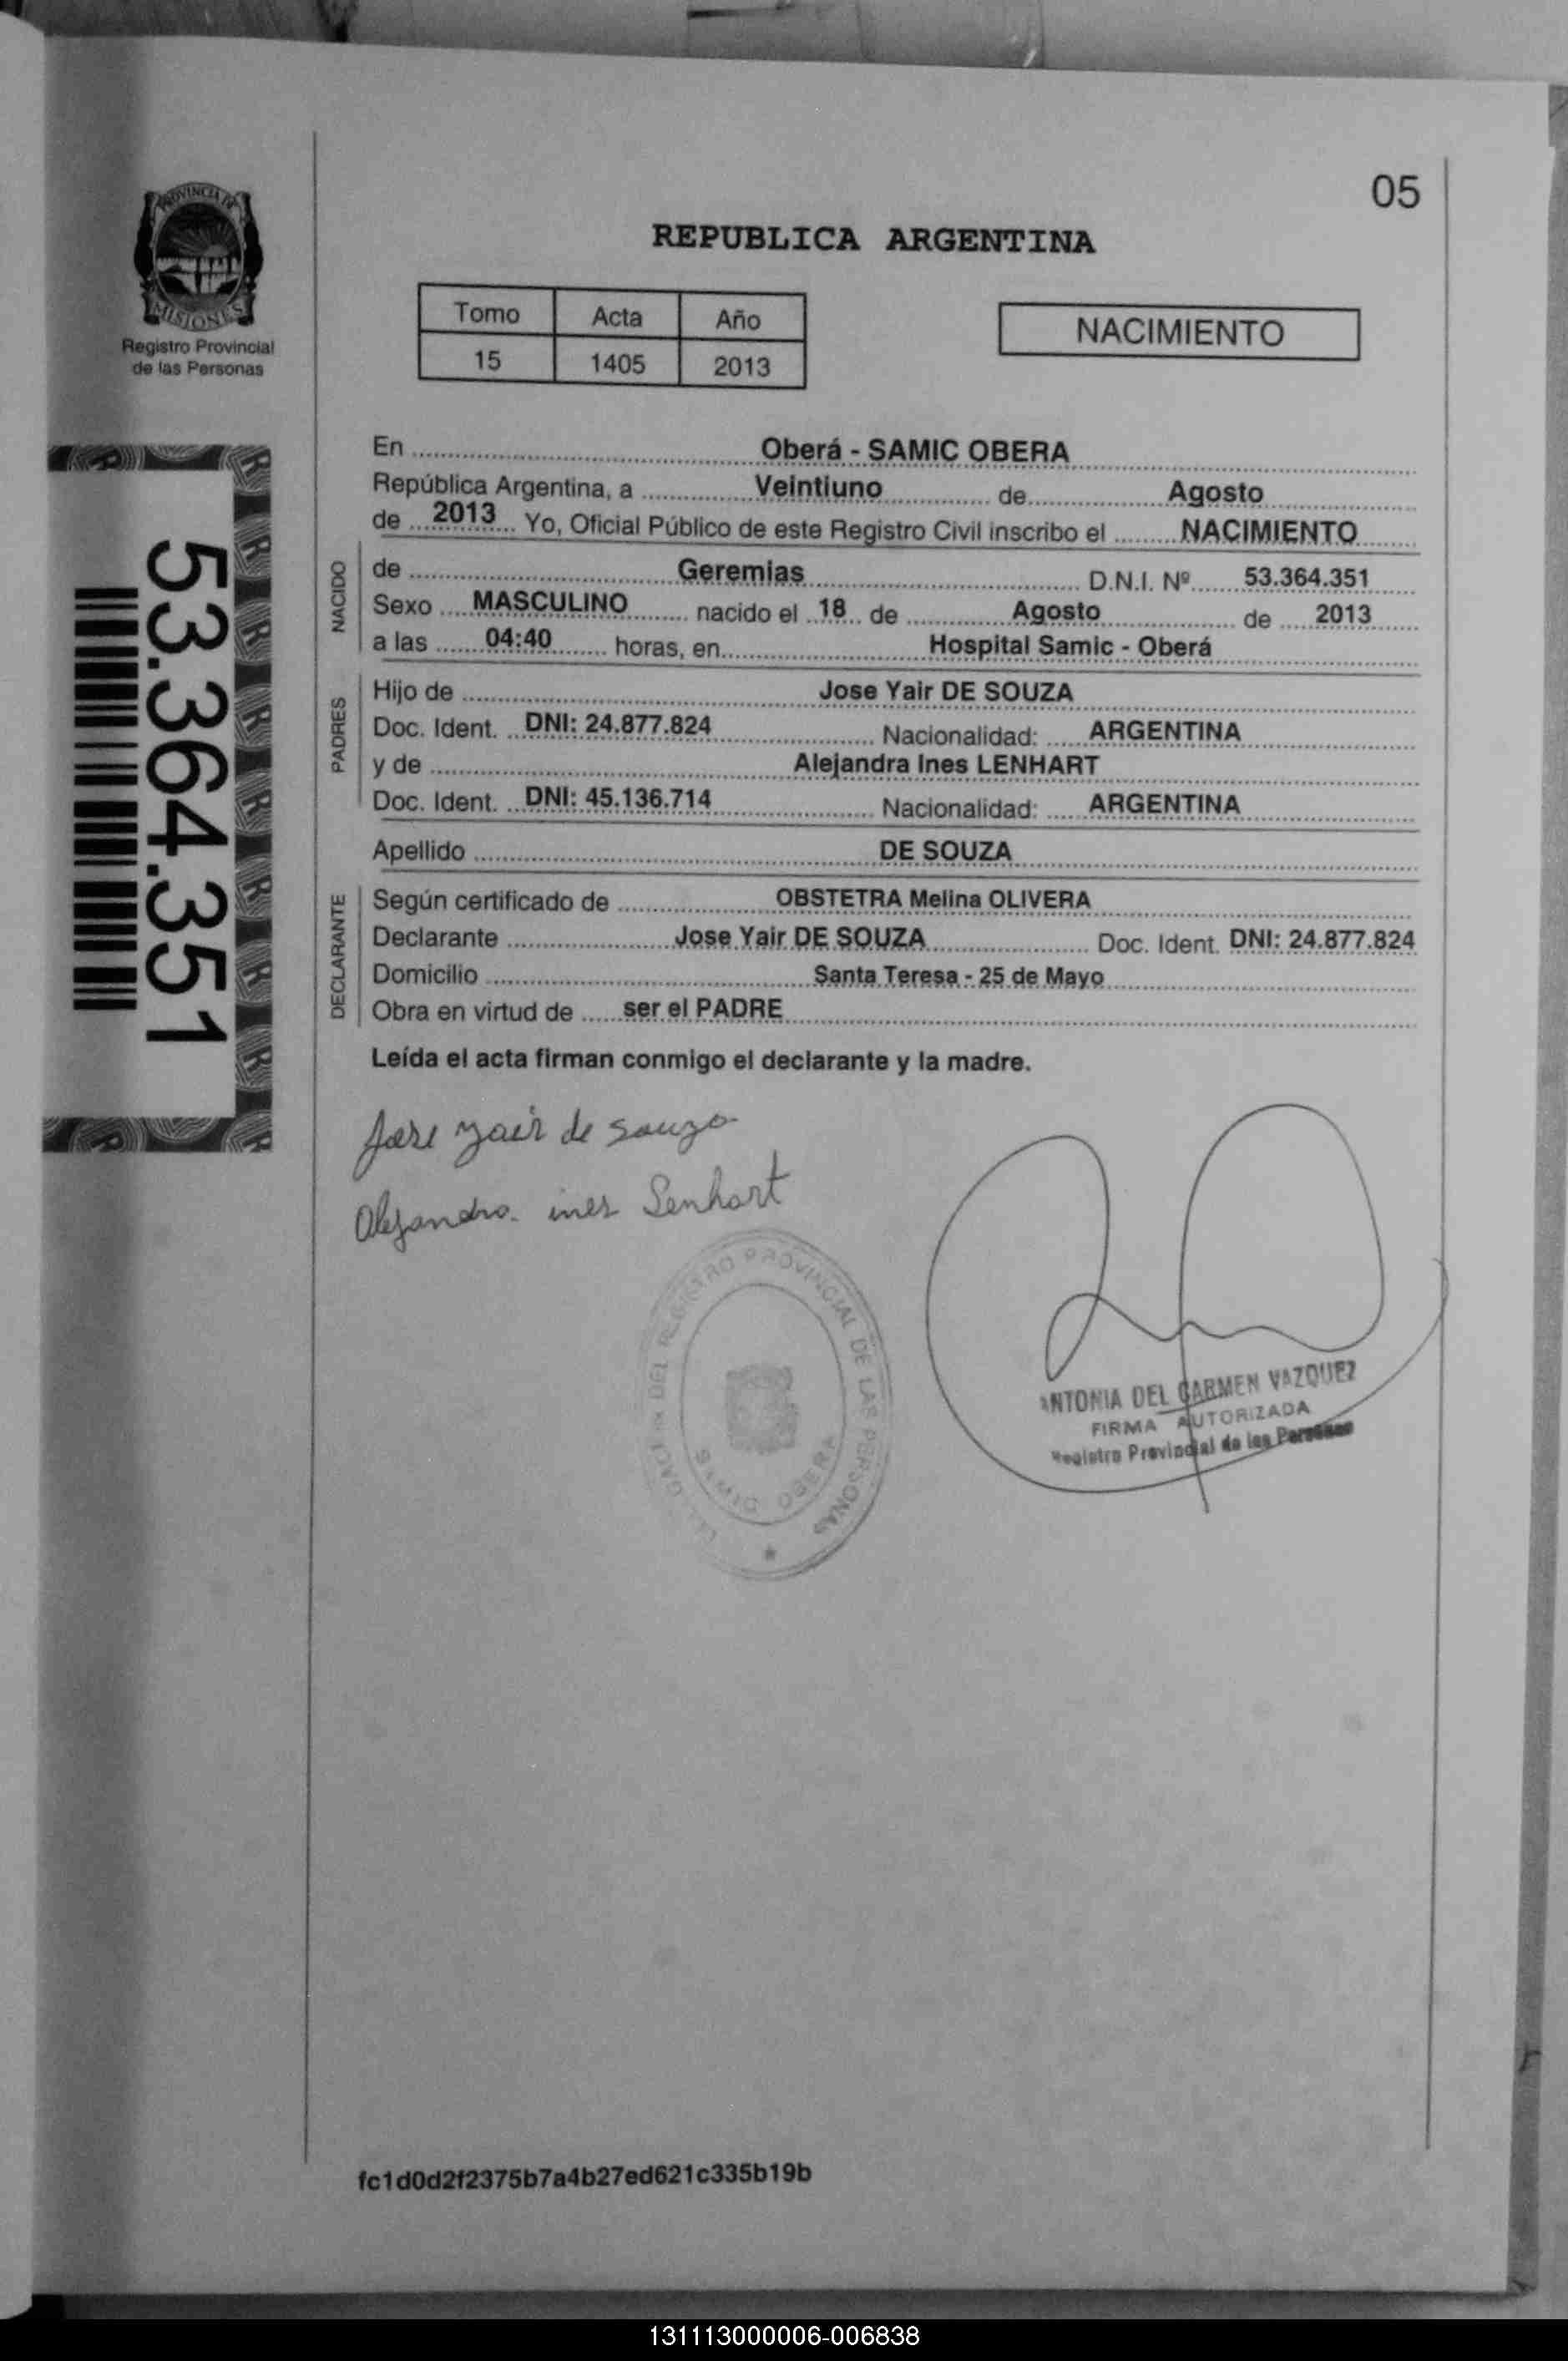 05
PROVINCIA DE
MISIONES
Registro Provincial
de las Personas
REPUBLICA ARGENTINA
Tomo Acta Año
15 1405 2013
NACIMIENTO
53.364.351
En Oberá - SAMIC OBERA
República Argentina, a Veintiuno de Agosto
de 2013 Yo, Oficial Público de este Registro Civil inscribo el NACIMIENTO
NACIDO
de Geremias D.N.I. Nº 53.364.351
Sexo MASCULINO nacido el 18 de Agosto de 2013
a las 04:40 horas, en Hospital Samic - Oberá
PADRES
Hijo de Jose Yair DE SOUZA
Doc. Ident. DNI: 24.877.824 Nacionalidad: ARGENTINA
y de Alejandra Ines LENHART
Doc. Ident. DNI: 45.136.714 Nacionalidad: ARGENTINA
Apellido DE SOUZA
DECLARANTE
Según certificado de OBSTETRA Melina OLIVERA
Declarante Jose Yair DE SOUZA Doc. Ident. DNI: 24.877.824
Domicilio Santa Teresa - 25 de Mayo
Obra en virtud de ser el PADRE
Leída el acta firman conmigo el declarante y la madre.
Jose yair de souza
Alejandra ines Lenhart
DEL REGISTRO PROVINCIAL DE LAS PERSONAS
SAMIC OBERA
ANTONIA DEL CARMEN VAZQUEZ
FIRMA AUTORIZADA
Registro Provincial de las Personas
fc1d0d2f2375b7a4b27ed621c335b19b
131113000006-006838